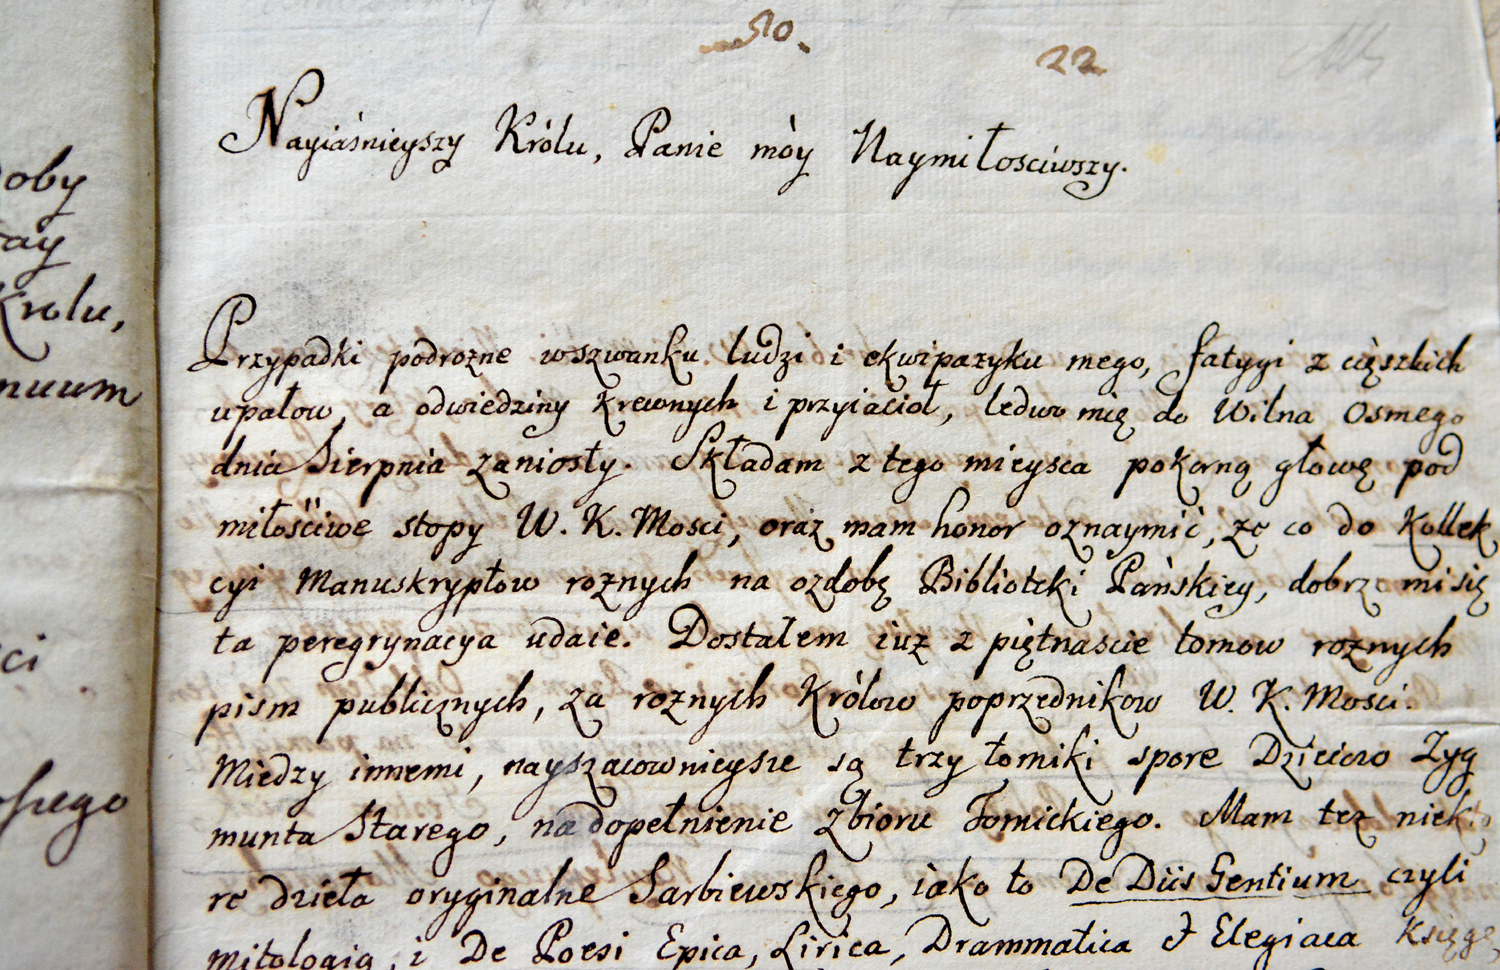 510.
22
Nayiáśnieyszy Królu, Panie móy Naymiłosciwszy.
oby
ay
Krolu,
nuum
ci
szego
Przypadki podrozne w szwanku ludzi i ekwipazyku mego, fatygi z cięszkich
upałow, a odwiedziny krewnych i przyiacioł, ledwo mię do Wilna osmego
dnia Sierpnia zaniosły. Składam z tego mieysca pokorną głowę pod
miłościwe stopy W. K. Mosci, oraz mam honor oznaymić, ze co do Kollek
cyi Manuskryptow roznych na ozdobę Biblioteki Pańskiey, dobrze mi się
ta peregrynacya udaie. Dostałem iuz z piętnascie tomow roznych
pism publicznych, za roznych Królow poprzednikow W. K. Mosci.
Miedzy innemi, nayszacownieysze są trzy tomiki spore Dzieiow Zyg
munta Starego, na dopełnienie zbioru Tomickiego. Mam tez niekto
re dzieła oryginalne Sarbiewskiego, iako to De Diis Gentium czyli
mitologią, i De Poesi Epica, Lirica, Drammatica & Elegiaca Księgę